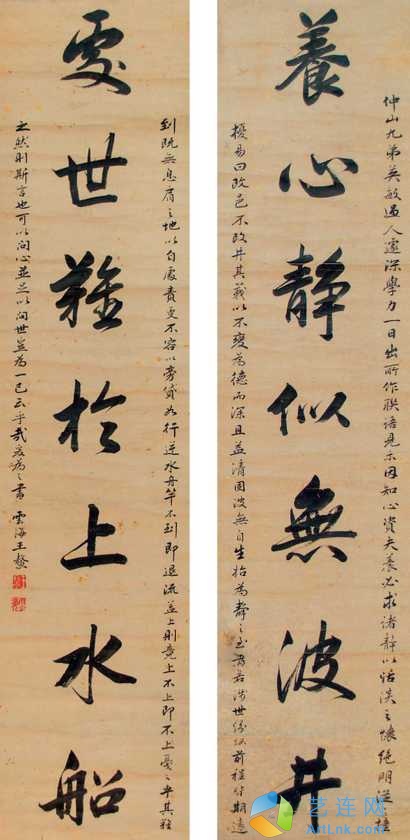 仲山九弟英敏過人邃深學力一日出所作聯語見示因知心資夫養必求諸靜以恬淡之懷絕明
養心靜似無波井
擾易曰改邑不改井其義以不變為德而深且益清固波無自生抬為靜之至焉若涉世紛紜前程時期遠
到既無息肩之地以自處責更不容以旁貸如行逆水舟竿不到即退流益上則竟上不上即不上戛戛乎其難
處世難於上水船
之然則斯言也可以問心並足以問世豈為一己云乎哉爰為之書 雲海王
艺连网
XJTLnk.com